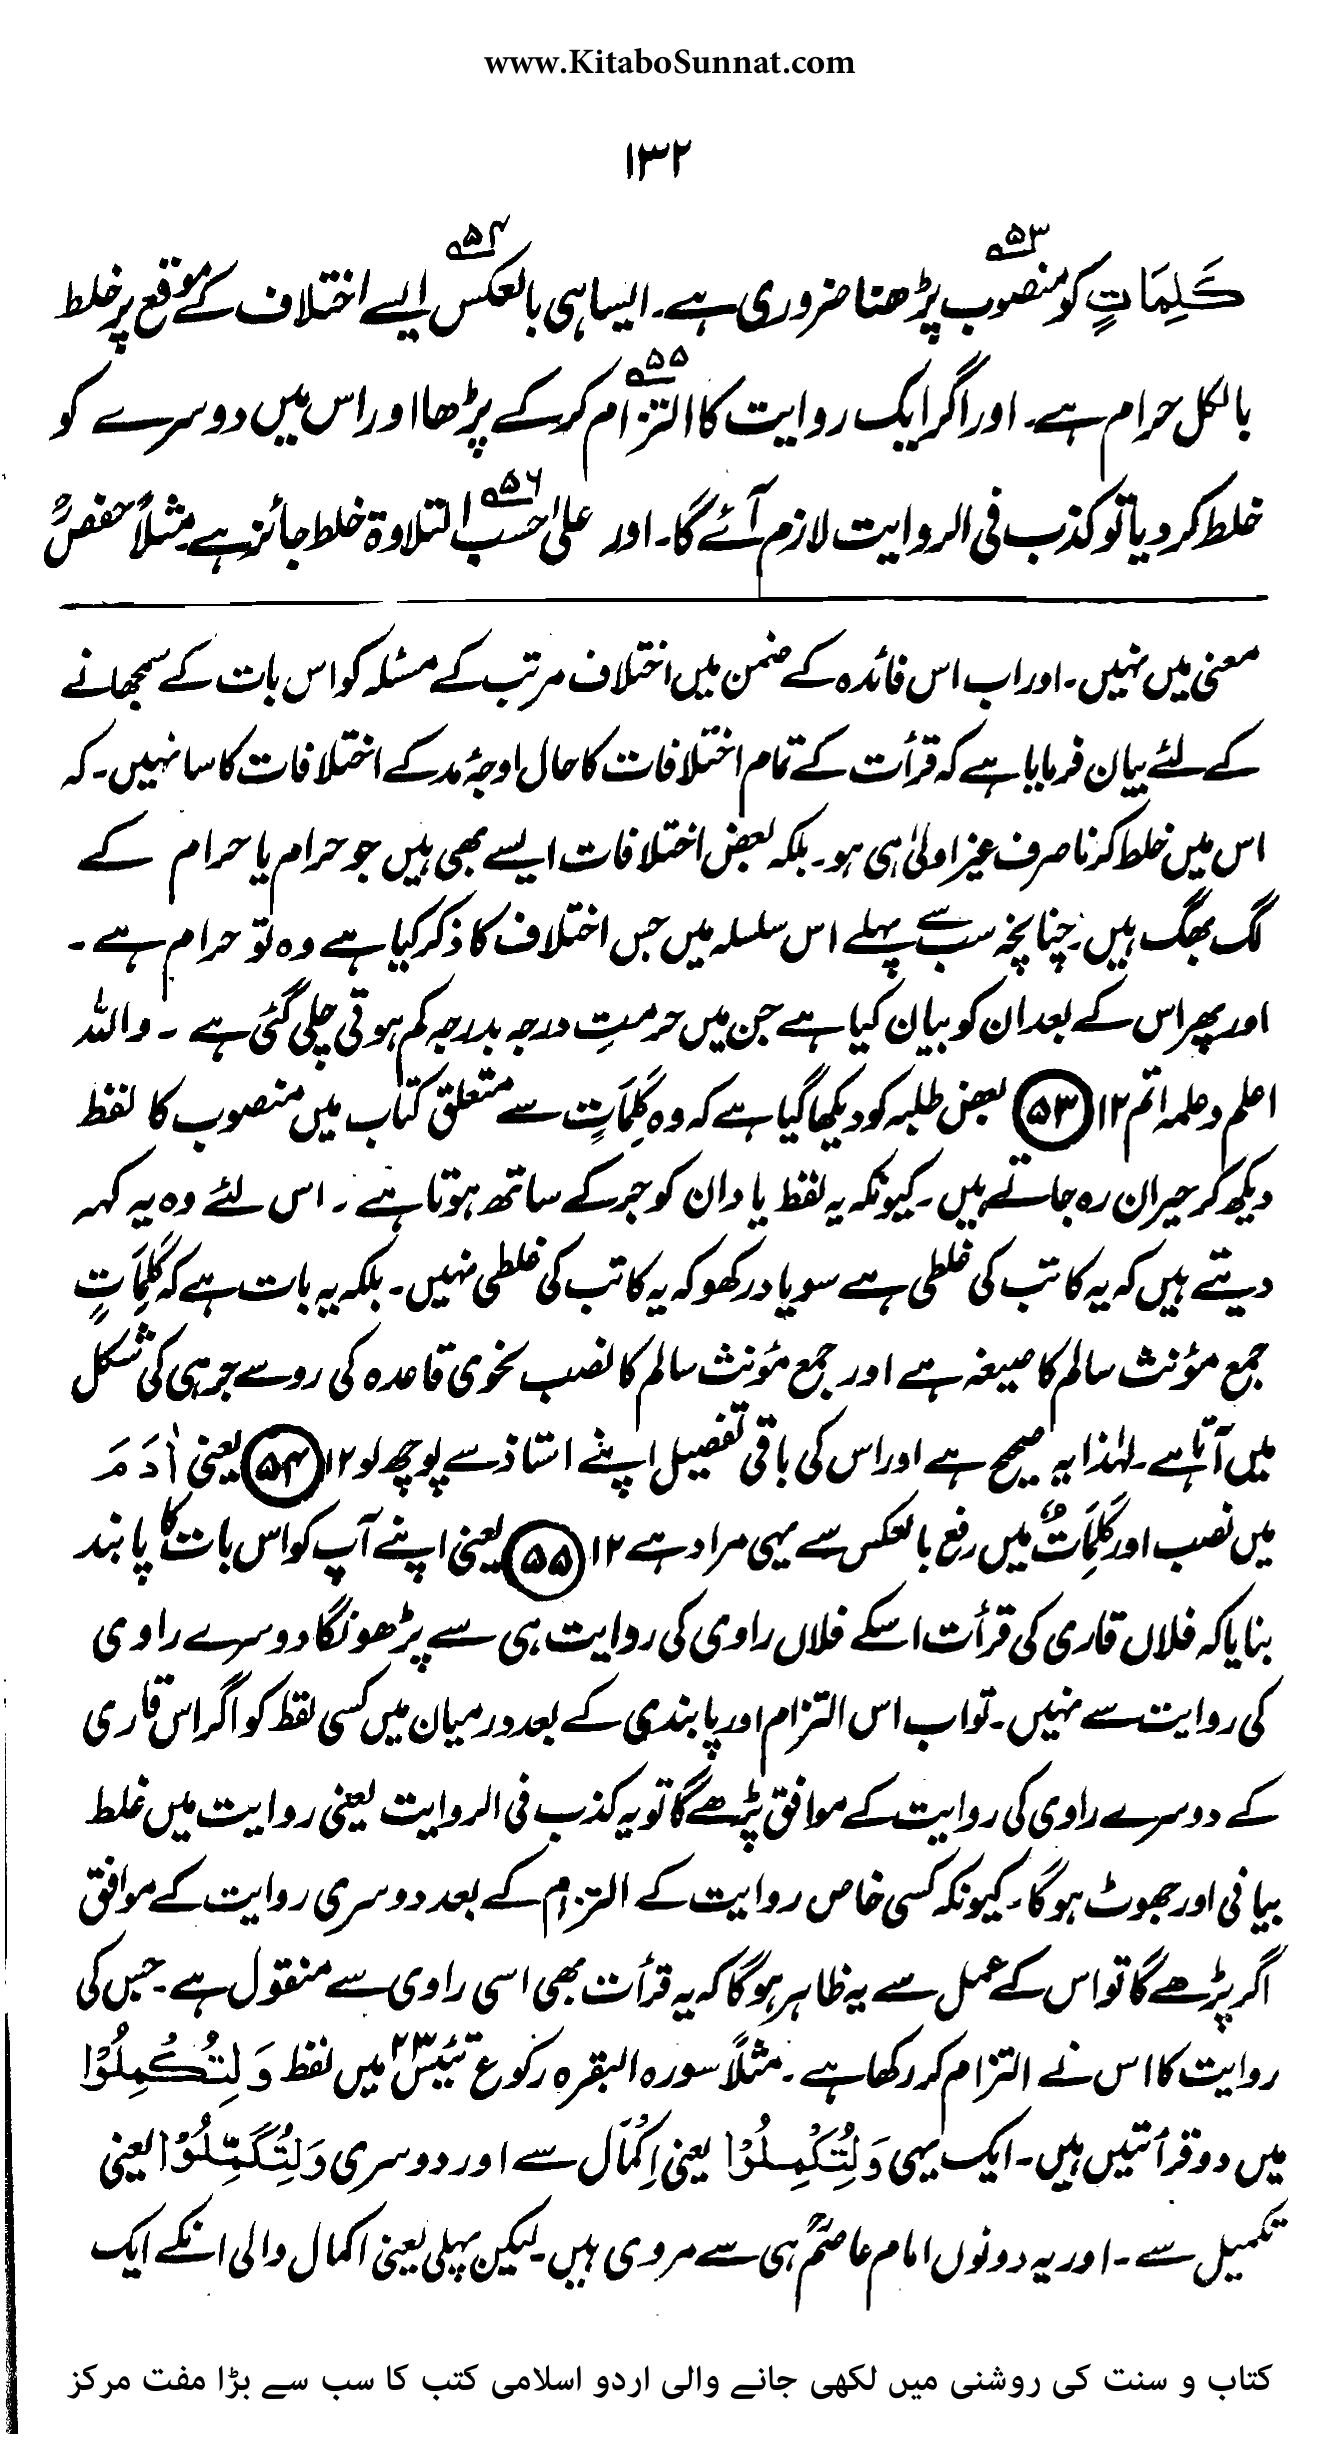 www.KitaboSunnat.com
۱۳۲
کَلِمَاتٍ کو منصوب ۵۳ پڑھنا ضروری ہے۔ ایسا ہی بالعکس ۵۴ ایسے اختلاف کے موقع پر خلط
بالکل حرام ہے۔ اور اگر ایک روایت کا التزام ۵۵ کرکے پڑھا اور اس میں دوسرے کو
خلط کر دیا تو کذب فی الروایت لازم آئے گا۔ اور علیٰ حسب ۵۶ التلاوۃ خلط جائز ہے۔ مثلاً حفصؒ
معنی میں نہیں۔ اور اب اس فائدہ کے ضمن میں اختلاف مرتب کے مسئلہ کو اس بات کے سمجھانے
کے لئے بیان فرمایا ہے کہ قرأت کے تمام اختلافات کا حال اوجۂ مد کے اختلافات کا سا نہیں۔ کہ
اس میں خلط کرنا صرف غیر اولیٰ ہی ہو۔ بلکہ بعض اختلافات ایسے بھی ہیں جو حرام یا حرام کے
لگ بھگ ہیں۔ چنانچہ سب سے پہلے اس سلسلہ میں جس اختلاف کا ذکر کیا ہے وہ تو حرام ہے۔
اور پھر اس کے بعد ان کو بیان کیا ہے جن میں حرمتِ درجہ بدرجہ کم ہوتی چلی گئی ہے ۔ واللہ
اعلم وعلمہ اتم ۱۲ ۵۳ بعض طلبہ کو دیکھا گیا ہے کہ وہ کَلِمَاتٍ سے متعلق کتاب میں منصوب کا لفظ
دیکھ کر حیران رہ جاتے ہیں۔ کیونکہ یہ لفظ یادان کو جر کے ساتھ ہوتا ہے ۔ اس لئے وہ یہ کہہ
دیتے ہیں کہ یہ کاتب کی غلطی ہے سو یاد رکھو کہ یہ کاتب کی غلطی نہیں۔ بلکہ یہ بات ہے کہ کَلِمَاتٍ
جمع مؤنث سالم کا صیغہ ہے اور جمع مؤنث سالم کا نصب نحوی قاعدہ کی رو سے جر ہی کی شکل
میں آتا ہے۔ لہٰذا یہ صحیح ہے اور اس کی باقی تفصیل اپنے استاذ سے پوچھ لو ۱۲ ۵۴ یعنی اٰدَمَ
میں نصب اور کَلِمَاتٌ میں رفع بالعکس سے یہی مراد ہے ۱۲ ۵۵ یعنی اپنے آپ کو اس بات کا پابند
بنایا کہ فلاں قاری کی قرأت اسکے فلاں راوی کی روایت ہی سے پڑھونگا دوسرے راوی
کی روایت سے نہیں۔ تو اب اس التزام اور پابندی کے بعد درمیان میں کسی لفظ کو اگر اس قاری
کے دوسرے راوی کی روایت کے موافق پڑھے گا تو یہ کذب فی الروایت یعنی روایت میں غلط
بیانی اور جھوٹ ہوگا۔ کیونکہ کسی خاص روایت کے التزام کے بعد دوسری روایت کے موافق
اگر پڑھے گا تو اس کے عمل سے یہ ظاہر ہوگا کہ یہ قرأت بھی اسی راوی سے منقول ہے۔ جس کی
روایت کا اس نے التزام کر رکھا ہے ۔ مثلاً سورہ البقرہ رکوع تیئیس ۲۳ میں لفظ وَلِتُکْمِلُوْا
میں دو قرأتیں ہیں۔ ایک یہی وَلِتُکْمِلُوْا یعنی اِکْمَال سے اور دوسری وَلِتُکَمِّلُوْا یعنی
تکمیل سے۔ اور یہ دونوں امام عاصمؒ ہی سے مروی ہیں۔ لیکن پہلی یعنی اکمال والی انکے ایک
کتاب و سنت کی روشنی میں لکھی جانے والی اردو اسلامی کتب کا سب سے بڑا مفت مرکز